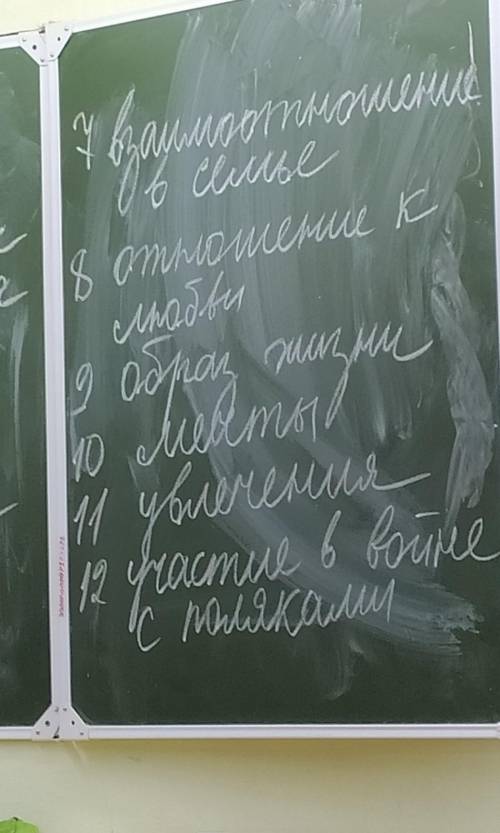 7 взаимоотношение
в семье
8 отношение к
любви
9 образ жизни
10 мечты
11 увлечения
12 участие в войне
с поляками